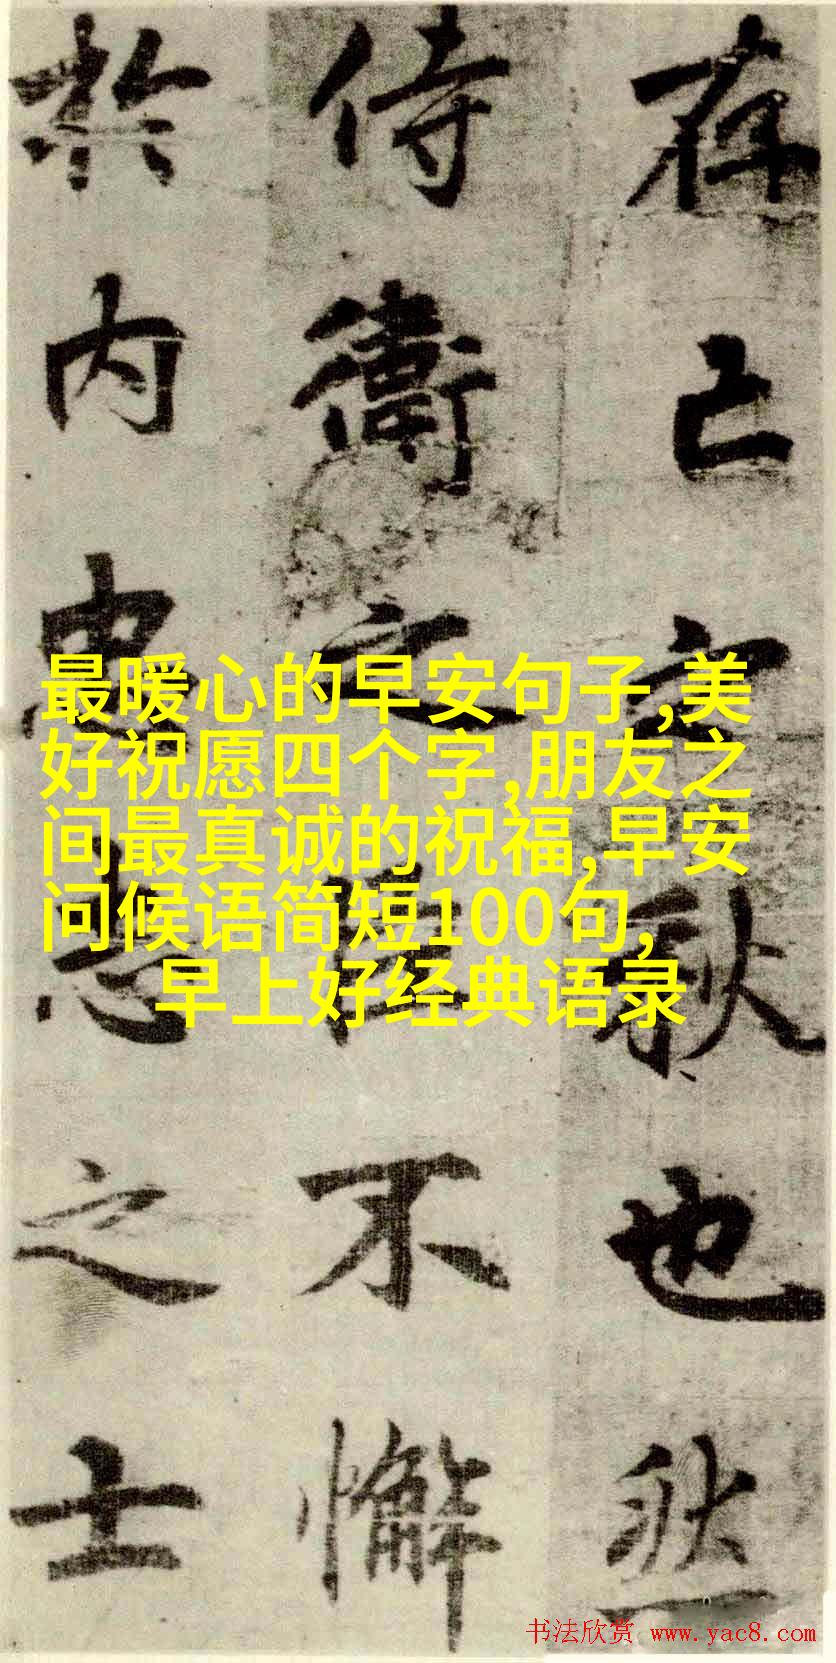 存亡之秋也然
侍衛之臣不懈
於内忠志之士
最暖心的早安句子,美
好祝愿四个字,朋友之
间最真诚的祝福,早安
问候语简短100句,
早上好经典语录
书法欣赏 www.yac8.com